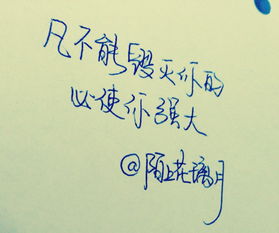 凡不能毁灭你的
必使你强大
@陌上花漓月